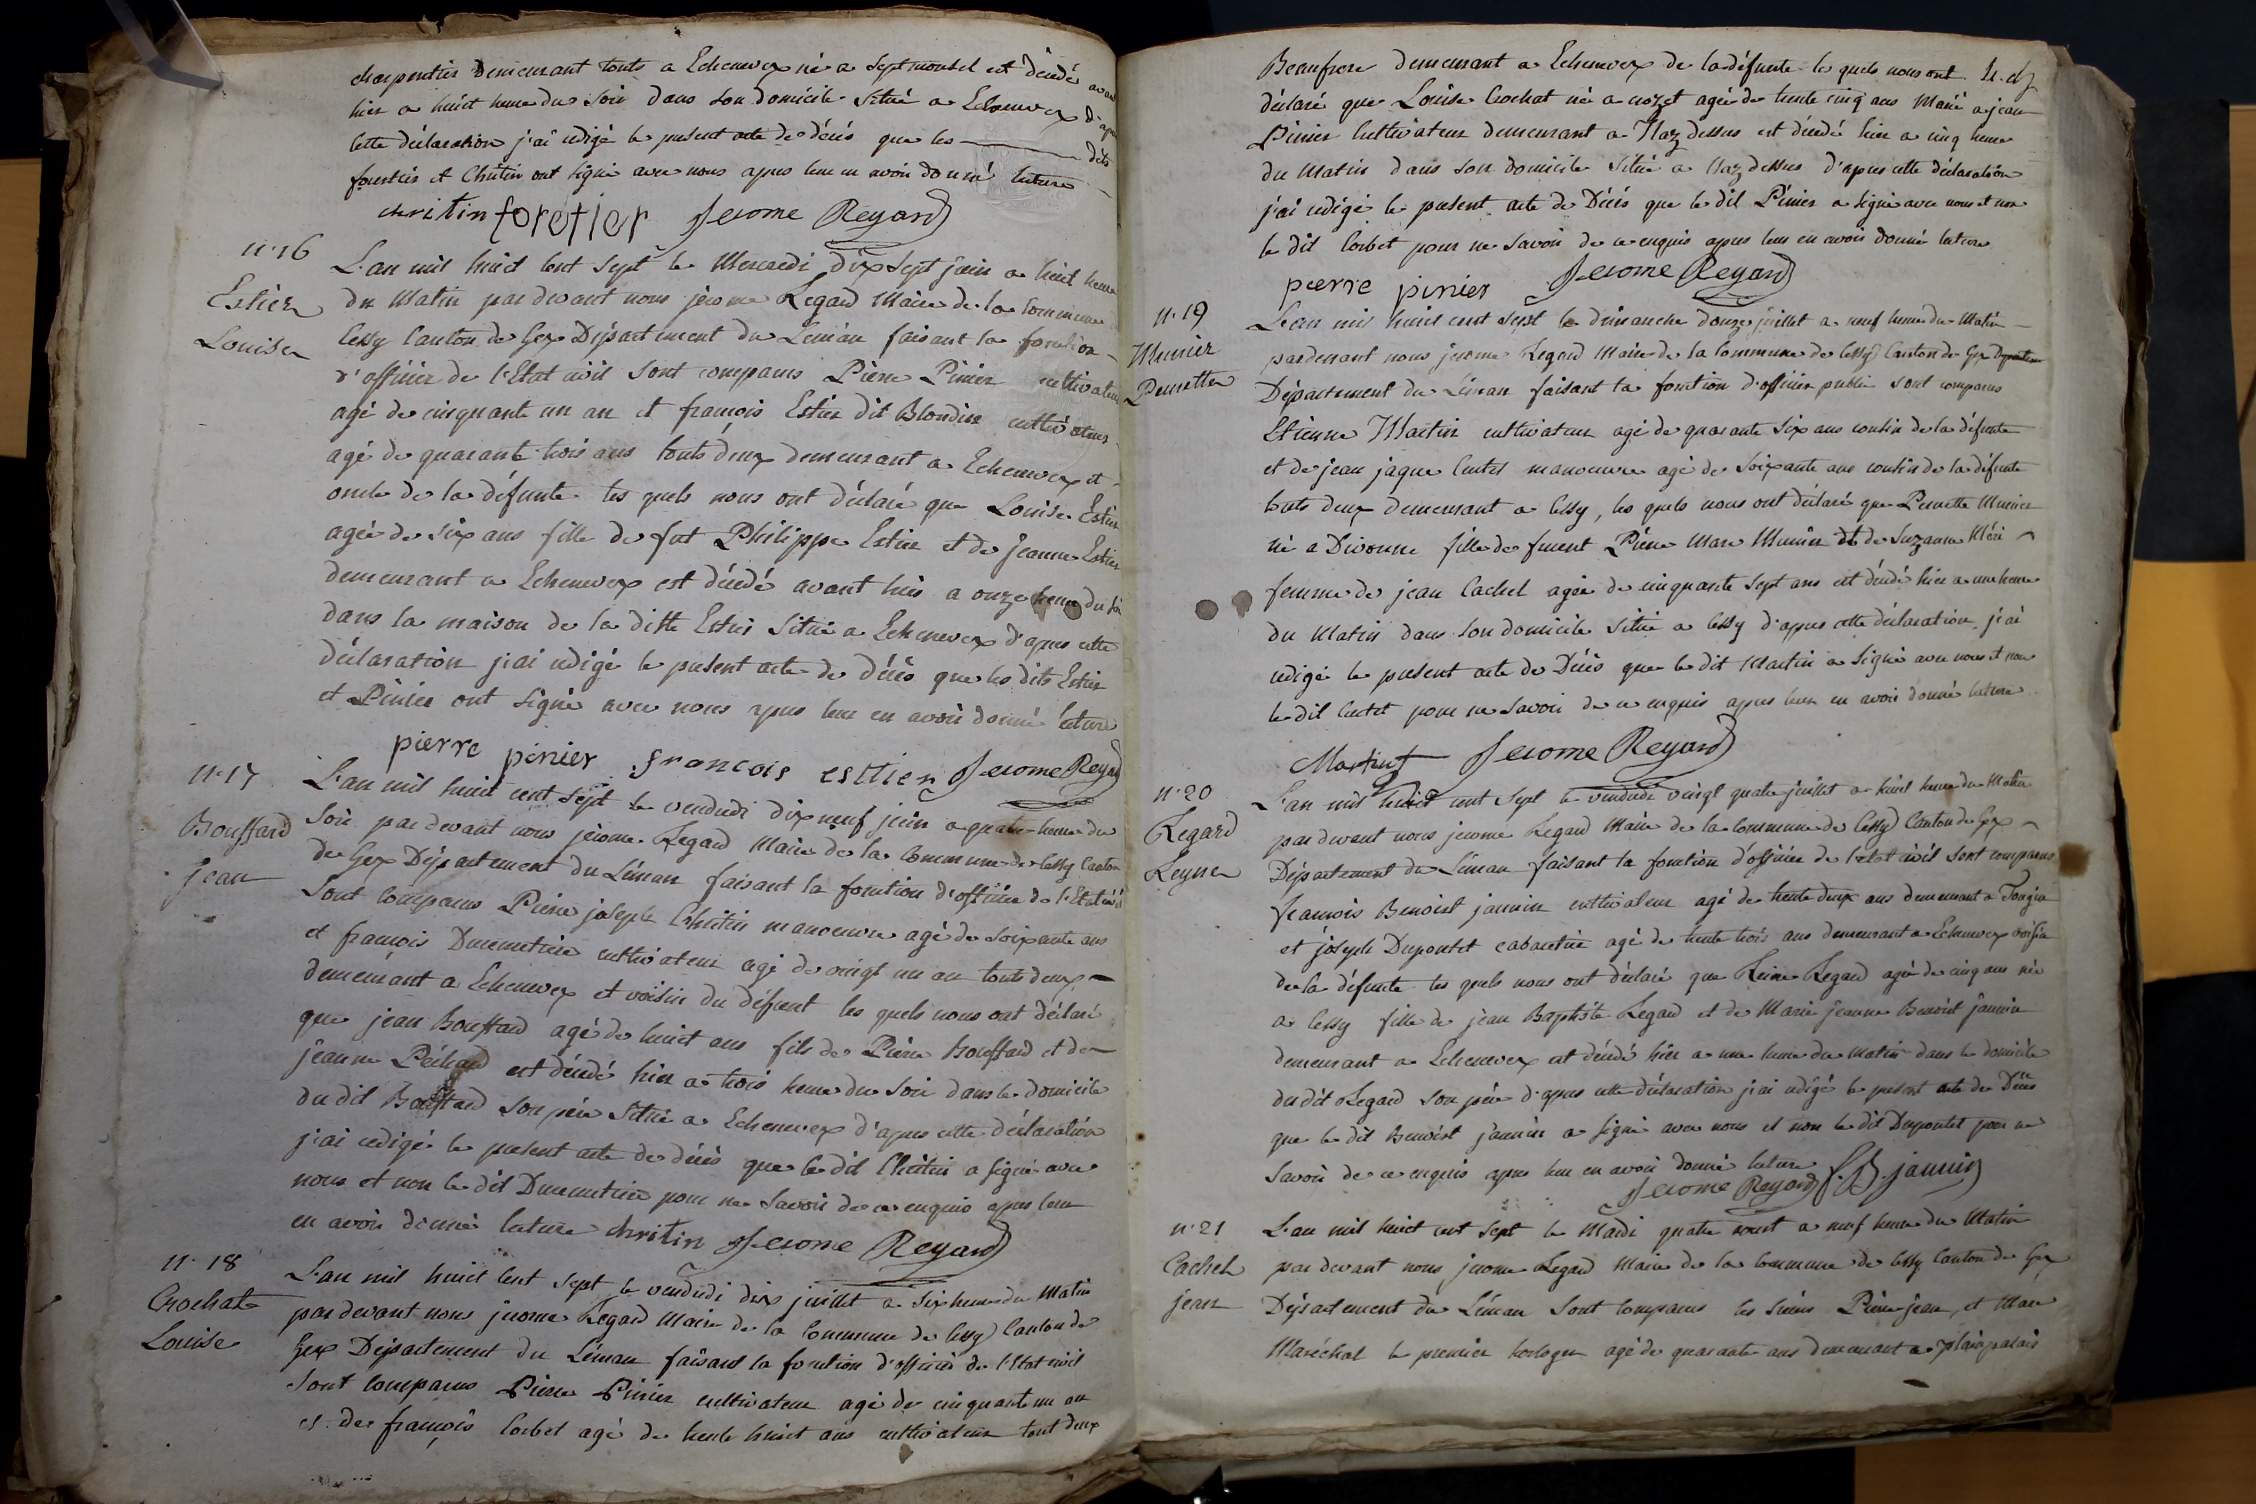 charpentier demeurant touts a Echenevex né a Septmoncel est décédé avant
hier a huict heure du soir dans son domicile situé a Echenevex d'apres
cette déclaration j'ai redigé le present acte de décés que les dits
forestier et Christin ont signé avec nous apres leur en avoir donné lecture
christin foretier Jerome Regard
n. 16
Estier
Louise
L'an mil huict cent sept le Mercredi dix sept juin a huit heure
du Matin par devant nous jerome Regard Maire de la Commune
Cessy Canton de Gex Département du Leman faisant la fonction
d'officier de l'Etat civil sont comparus Pierre Pinier cultivateur
agé de cinquante un an et françois Estier dit Blondin cultivateur
agé de quarante trois ans touts deux demeurant a Echenevex et
oncle de la défunte les quels nous ont déclaré que Louise Estier
agée de six ans fille de fut Philippe Estier et de Jeanne Estier
demeurant a Echenevex est décédé avant hier a onze heure du soir
dans la maison de la ditte Estier situé a Echenevex d'apres cette
déclaration j'ai redigé le present acte de décés que les dits Estier
et Pinier ont signé avec nous apres leur en avoir donné lecture
pierre pinier francois esttier Jerome Regard
n. 17
Bouffard
jean
L'an mil huit cent sept le vendredi dix neuf juin a quatre heure du
Soir par devant nous jerome Regard Maire de la Commune de Cessy Canton
de Gex Département du Léman faisant la fonction d'officier de l'Etat civil
Sont comparus Pierre joseph Christin manoeuvre agé de soixante ans
et françois cultivateur agé de vingt un an touts deux
demeurant a Echenevex et voisin du défunt les quels nous ont déclaré
que jean Bouffard agé de huict ans fils de Pierre Bouffard et de
jeanne est décédé hier a trois heure du soir dans le domicile
du dit Bouffard son père situé a Echenevex d'apres cette déclaration
j'ai redigé le present acte de décés que le dit Christin a signé avec
nous et non le dit pour ne savoir de ce enquis apres leur
en avoir donné lecture christin Jerome Regard
n. 18
Crochat
Louise
L'an mil huict cent sept le vendredi dix juillet a six heure du Matin
par devant nous jerome Regard Maire de la Commune de Cessy Canton de
Gex Département du Léman faisant la fonction d'officier de l'Etat civil
sont comparus Pierre Pinier cultivateur agé de cinquante un an
et de françois Corbet agé de trente huict ans cultivateur tout deux
Beaufrere demeurant a Echenevex de la défunte les quels nous ont
déclaré que Louise Crochat né a crozet agée de trente cinq ans Marié a jean
Pinier cultivateur demeurant a Naz dessus est décédé hier a cinq heure
du Matin dans son domicile situé a Naz dessus d'apres cette déclaration
j'ai redigé le present acte de Décés que le dit Pinier a signé avec nous et non
le dit Corbet pour ne savoir de ce enquis apres leur en avoir donné lecture
pierre pinier Jerome Regard
n. 19
Munier
Pernette
L'an mil huict cent sept le dimanche douze juillet a neuf heure du Matin
par devant nous jerome Regard Maire de la Commune de Cessy Canton de Gex
Département du Léman faisant la fonction d'officier public sont comparus
Etienne Martin cultivateur agé de quarante six ans cousin de la défunte
et de jean jaque manoeuvre agé de soixante ans cousin de la défunte
touts deux demeurant a Cessy, les quels nous ont déclaré que Pernette Munier
né a Divonne fille de furent Pierre Marc Munier et de Suzanne Méri
femme de jean Cachet agée de cinquante sept ans est décédé hier a une heure
du Matin dans son domicile situé a Cessy d'apres cette déclaration j'ai
redigé le present acte de Décés que le dit Martin a signé avec nous et non
le dit pour ne savoir de ce enquis apres leur en avoir donné lecture
Martin Jerome Regard
n. 20
Regard
Reyne
L'an mil huict cent sept le vendredi vingt quatre juillet a huit heure du Matin
par devant nous jerome Regard Maire de la Commune de Cessy Canton de Gex
Département du Léman faisant la fonction d'officier de l'etat civil sont comparus
françois Benoist jannin cultivateur agé de trente deux ans demeurant a Tougin
et joseph Dupontet cabaretier agé de trente trois ans demeurant a Echenevex voisin
de la défunte les quels nous ont déclaré que Reine Regard agée de cinq ans née
a Cessy fille de jean Baptiste Regard et de Marie jeanne Benoist jannin
demeurant a Echenevex est décédé hier a une heure du matin dans le domicile
du dit Regard son père d'apres cette déclaration j'ai redigé le present acte de Décés
que le dit Benoist jannin a signé avec nous et non le dit Dupontet pour ne
savoir de ce enquis apres leur en avoir donné lecture
Jerome Regard f. B. jannin
n. 21
Cachet
jean
L'an mil huict cent sept le Mardi quatre aoust a neuf heure du Matin
par devant nous jerome Regard Maire de la Commune de Cessy Canton de Gex
Département du Léman sont comparus les Pierre jean, et Marc
Maréchal le premier horloger agé de quarante ans demeurant a plainpalais